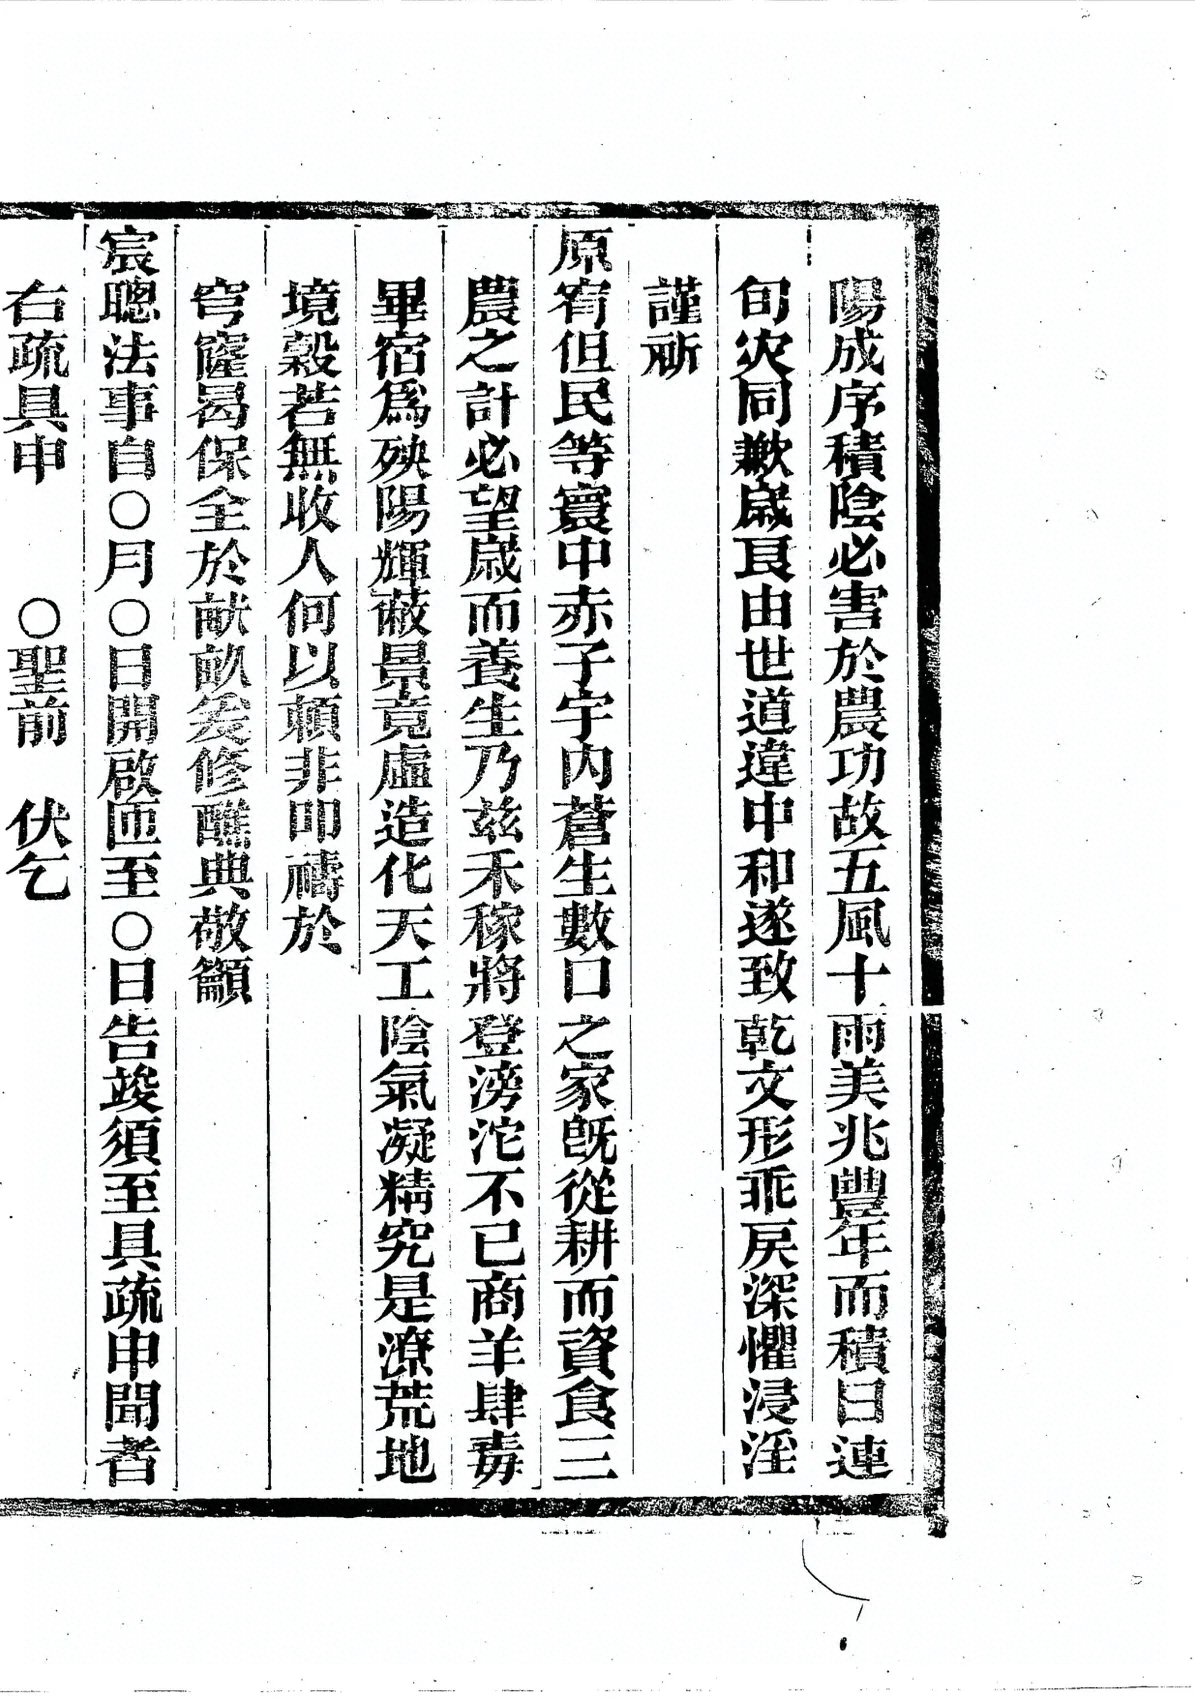 陽成序積陰必害於農功故五風十雨美兆豐年而積日連
旬灾同歉歲良由世道違中和遂致乾文形乖戾深懼浸淫
謹祈
原宥但民等寰中赤子宇內蒼生數口之家旣從耕而資食三
農之計必望歲而養生乃兹禾稼將登滂沱不已商羊肆毒
畢宿爲殃陽輝蔽景竟虛造化天工陰氣凝精究是潦荒地
境穀若無收人何以賴非叩禱於
穹窿曷保全於畎畝爰修醮典敬籲
宸聰法事自○月○日開啟迊至○日告竣須至具疏申聞者
右疏具申　○聖前　伏乞